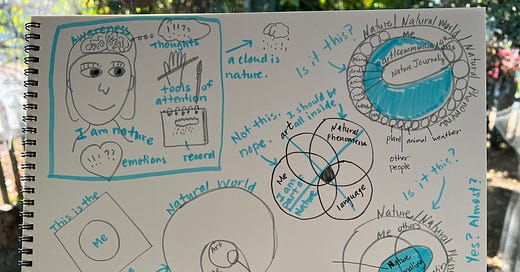 Awareness
Thoughts
!!??
tools of
attention
I am nature
!!??
emotions
record
a cloud is
nature.
Is it this?
Nature/Natural World
Me
art/communication
Nature Journaling
Natural Phenomena
plant
animal
weather
other
people
Not this.
nope.
I should be
all inside
art
Natural
phenomena
Me
I am
part of
Nature
language
Is it this?
Yes? Almost?
This is the
Me
Natural World
Art
Nature/Natural
Me
others
Nature